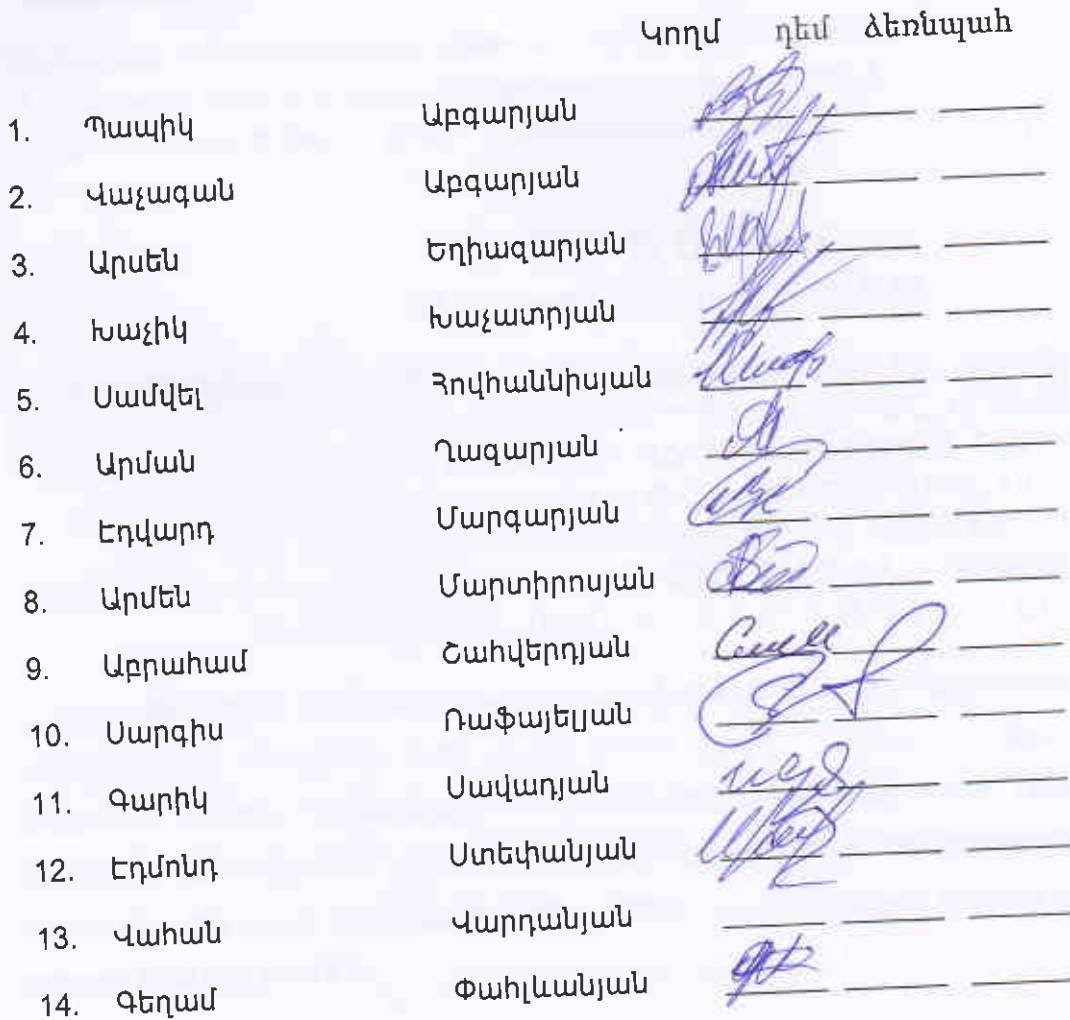 Կողմ դեմ ձեռնպահ
1. Պապիկ Աբգարյան
2. Վաչագան Աբգարյան
3. Արսեն Եղիազարյան
4. Խաչիկ Խաչատրյան
5. Սամվել Հովհաննիսյան
6. Արման Ղազարյան
7. Էդվարդ Մարգարյան
8. Արմեն Մարտիրոսյան
9. Աբրահամ Շահվերդյան
10. Սարգիս Ռաֆայելյան
11. Գարիկ Սավադյան
12. Էդմոնդ Ստեփանյան
13. Վահան Վարդանյան
14. Գեղամ Փահլևանյան